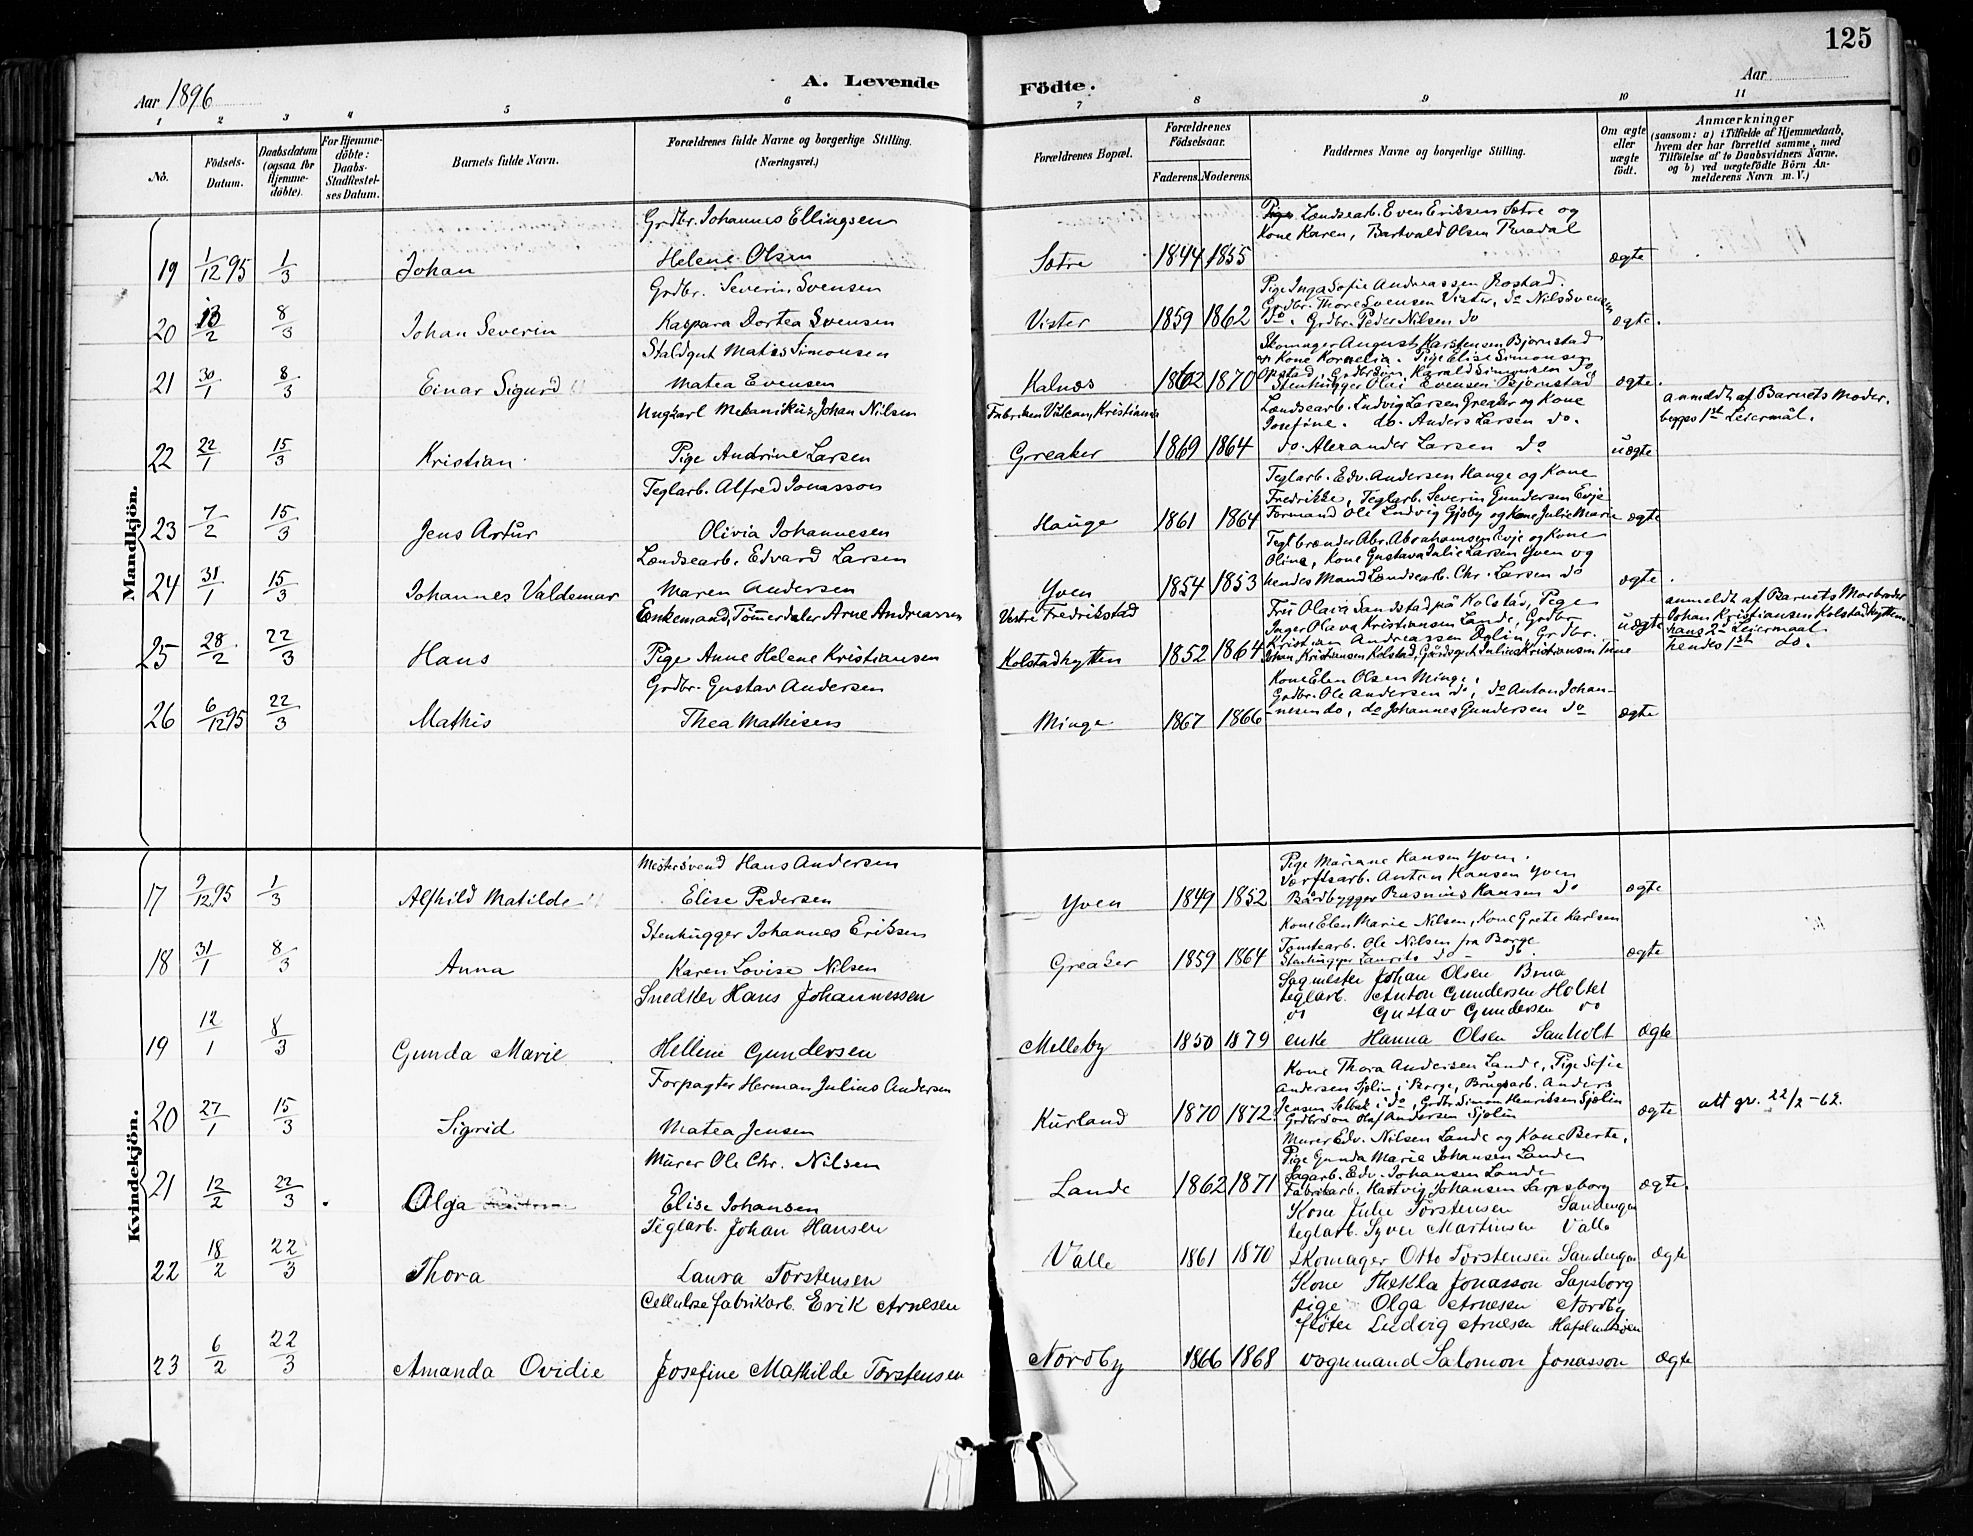 125
Aar 1896
A. Levende Födte.
Aar
1 2 3 4 5 6 7 8 9 10 11
No.
Födsels-Datum.
Daabsdatum (ogsaa for Hjemme-döbte).
For Hjemme-döbte: Daabs-Stadfæstel-ses Datum.
Barnets fulde Navn.
Forældrenes fulde Navne og borgerlige Stilling. (Næringsvei.)
Forældrenes Bopæl.
Forældrenes Födselsaar.
Faderens. Moderens.
Faddernes Navne og borgerlige Stilling.
Om ægte eller uægte födt.
Anmærkninger
(saasom: a) i Tilfælde af Hjemmedaab, hvem der har forrettet samme, med Tilföielse af to Daabsvidners Navne, og b) ved uægtefödte Börn An-melderens Navn m. V.)
Mandkjön.
Grdbr. Johannes Ellingsen
Pige Landsearb. Even Eriksen Sætre og
Kone Karen, Bartvald Olsen
19 1/12 95 1/3 Johan Helene Olsen Sætre 1844 1855 ægte
Grdbr. Severin Svensen
Pige Inga Sofie Andreassen Rostad.
Grdbr. Thore Svensen Vister, do Nils Svensen
20 13/2 8/3 Johan Severin Kaspara Dortea Svensen Vister 1859 1862 do. Grdbr. Peder Nilsen do ægte.
Staldgut Matis Simonsen
Skomager August Karstensen Bjørnstad
og Kone Kornelia. Pige Elise Simonsen
Opstad, Grdbrsøn Harald Simonsen do
21 30/1 8/3 Einar Sigurd Matea Evensen Kalnæs 1862 1870 Stenhugger Olai Evensen Bjørnstad ægte.
Ungkarl Mekanikus Johan Nilsen Fabriken Vulcan, Kristiania
Landsearb. Ludvig Larsen Greaker og Kone
Josefine. do. Anders Larsen do.
anmeldt af Barnets Moder.
begges 1st Leiermål.
22 22/1 15/3 Kristian Pige Andrine Larsen Greaker 1869 1864 do. Alexander Larsen do uægte
Teglarb. Alfred Jonasson
Teglarb. Edv. Andersen Hauge og Kone
Fredrikke, Teglarb. Severin Gundersen Evje
23 7/2 15/3 Jens Artur Olivia Johannesen Hauge 1861 1864 Formand Ole Ludvig Gjøby og Kone Julie Marie ægte
Landsearb. Edvard Larsen
Teglbrænder Abr. Abrahamsen Evje og Kone
Oline, Kone Gustava Julie Larsen Yven og
24 31/1 15/3 Johannes Valdemar Maren Andersen Yven 1854 1853 hendes Mand Landsearb. Chr. Larsen do ægte.
Enkemand, Tømerdeler Arne Andreassen Vestre Fredrikstad
Frü Olava Sandstad på Kolstad, Pige
Inger Olava Kristiansen Lande, Grdbr.
Kristian Andreassen Dølin, Grdbr.
anmeldt af Barnets Morbroder
Johan Kristiansen Kolstadhytten
hans 2d Leiermaal
hendes 1st do.
25 28/2 22/3 Hans Pige Anne Helene Kristiansen Kolstadhytten 1852 1864 Johan Kristiansen Kolstad, Gårdsgut Julius Kristiansen Tune uægte
Grdbr. Gustav Andersen
Kone Elen Olsen Minge.
Grdbr. Ole Andersen do, do Anton Johan-
26 6/12 95 22/3 Mathis Thea Mathisen Minge 1867 1866 nesen do, do Johannes Gundersen do ægte
Kvindekjön.
Mestersvend Hans Andersen
Pige Mariane Hansen Yven.
Værftsarb. Anton Hansen Yven
17 9/12 95 1/3 Alfhild Matilde Elise Pedersen Yven 1849 1852 Bådbygger Rasmus Hansen do ægte
Stenhugger Johannes Eriksen
Kone Elen Marie Nilsen, Kone Grete Karlsen
Tomtearb. Ole Nilsen fra Borge
18 31/1 8/3 Anna Karen Lovise Nilsen Greaker 1859 1864 Stenhugger Laurits do - do. ægte
Snedker Hans Johannessen
Sagmester Johan Olsen Brua
teglarb. Anton Gundersen Holtet
do Gustav Gundersen do
19 12/1 8/3 Gunda Marie Hellene Gundersen Melleby 1850 1879 enke Hanna Olsen Sanholt ægte
Forpagter Herman Julius Andersen
Kone Thora Andersen Lande, Pige Sofie
Andersen Sjølin i Borge, Brugsarb. Anders
Jensen Selbak i do, Grdbr Simon Henriksen Sjølin
20 27/1 15/3 Sigrid Matea Jensen Kurland 1870 1872 Grdbrsøn Olaf Andersen Sjølin ægte att gv. 22/2-62.
Murer Ole Chr. Nilsen
Murer Edv. Nilsen Lande og Kone Berte,
Pige Gunda Marie Johansen Lande
Sagarb. Edv. Johansen Lande
21 12/2 22/3 Olga Elise Johansen Lande 1862 1871 Fabrikarb. Hartvig Johansen Sarpsborg ægte.
Teglarb. Johan Hansen
Kone Julie Torstensen Sandengen
teglarb. Syver Martinsen Valle
22 18/2 22/3 Thora Laura Torstensen Valle 1861 1870 Skomager Otto Torstensen Sandengen ægte
Cellulose fabrikarb. Erik Arnesen
Kone Thekla Jonasson Sapsborg
pige Olga Arnesen Nordby
fløter Ludvig Arnesen Hafslundsøen
23 6/2 22/3 Amanda Ovidie Josefine Mathilde Torstensen Nordby 1866 1868 vognmand Salomon Jonasson ægte